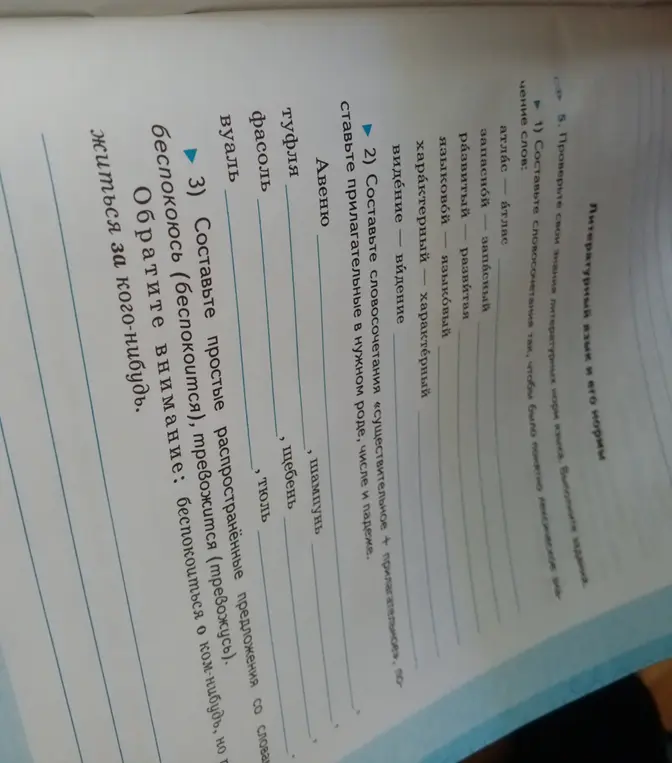 Литературный язык и его нормы
5. Проверьте свои знания литературных норм языка. Выполните задания.
▶ 1) Составьте словосочетания так, чтобы было понятно лексическое зна-
чение слов:
атла́с — а́тлас
запасно́й — запа́сный
ра́звитый — разви́тая
языково́й — языко́вый
хара́ктерный — характе́рный
виде́ние — ви́дение
▶ 2) Составьте словосочетания «существительное + прилагательное», по-
ставьте прилагательные в нужном роде, числе и падеже.
Авеню , шампунь ,
туфля , щебень ,
фасоль , тюль .
вуаль
▶ 3) Составьте простые распространённые предложения со слова
беспокоюсь (беспокоится), тревожится (тревожусь).
Обратите внимание: беспокоиться о ком-нибудь, но
житься за кого-нибудь.